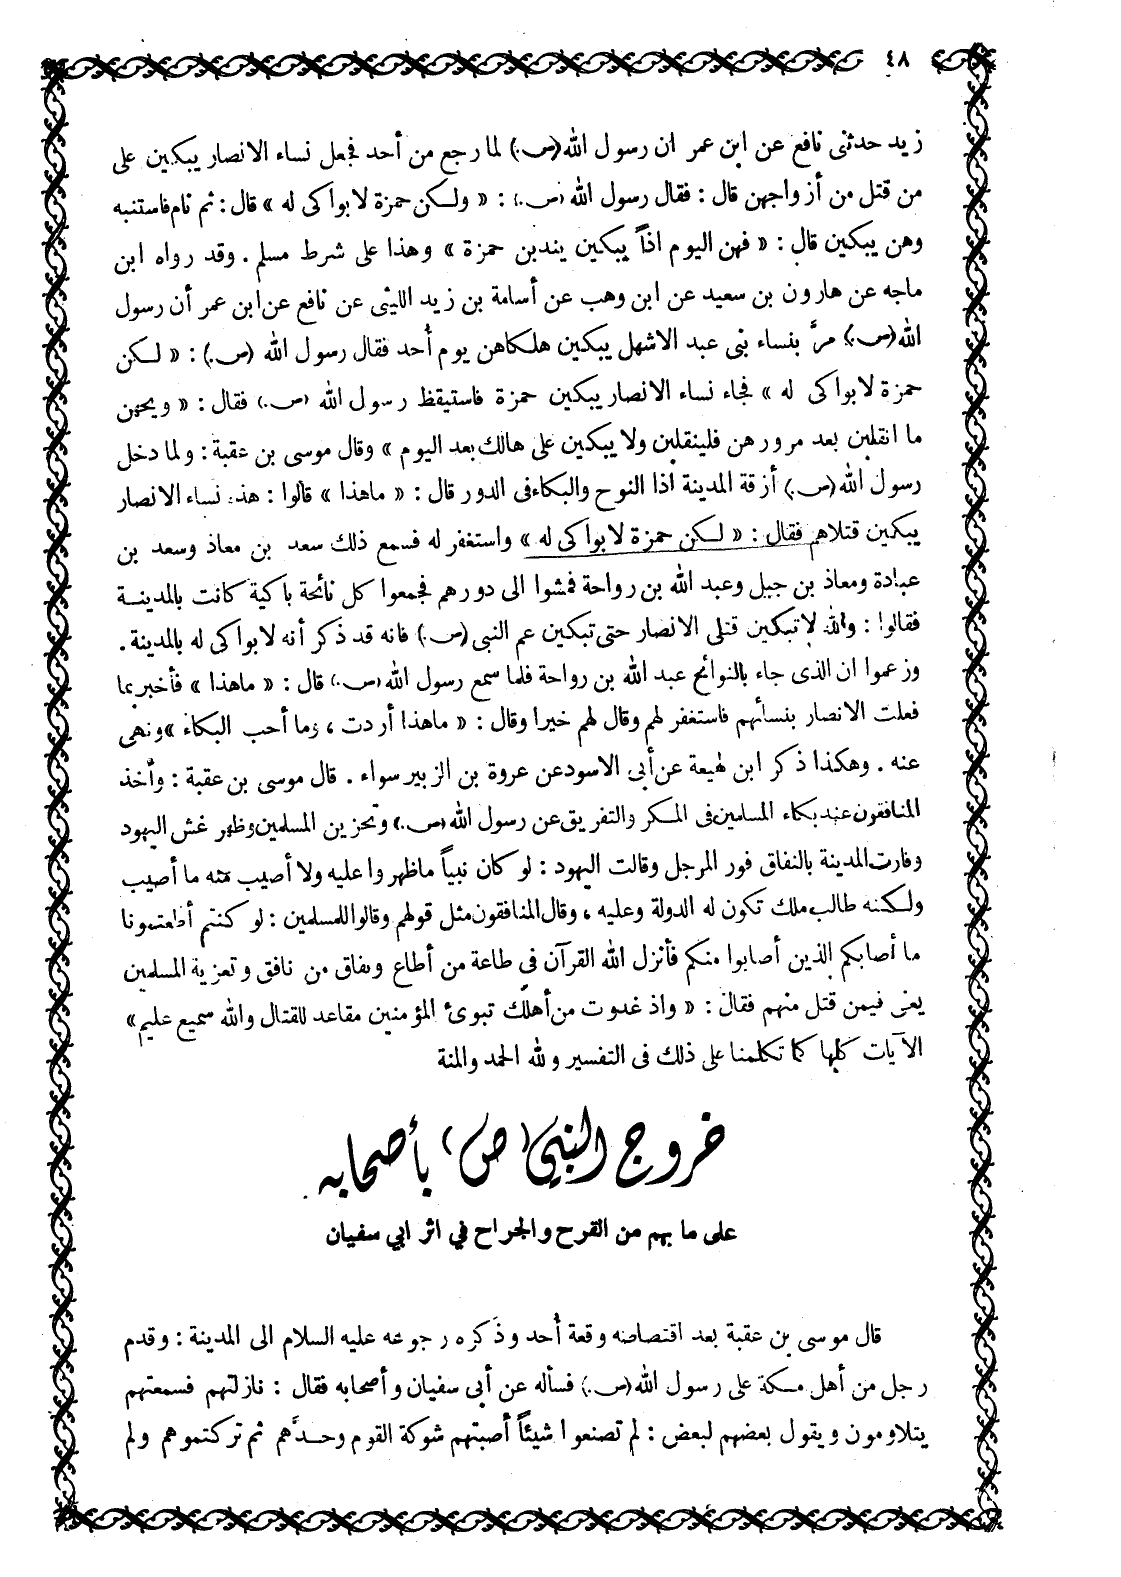 ٤٨
زيد حدثنى نافع عن ابن عمر ان رسول الله (ص.) لما رجع من أحد فجعل نساء الانصار يبكين على
من قتل من أزواجهن قال : فقال رسول الله (ص.) : « ولكن حمزة لا بواكى له » قال : ثم نام فاستنبه
وهن يبكين قال : « فهن اليوم اذاً يبكين يندبن حمزة » وهذا على شرط مسلم . وقد رواه ابن
ماجه عن هارون بن سعيد عن ابن وهب عن أسامة بن زيد الليثى عن نافع عن ابن عمر أن رسول
الله (ص.) مرَّ بنساء بنى عبد الاشهل يبكين هلكاهن يوم أُحد فقال رسول الله (ص.) : « لكن
حمزة لا بواكى له » فجاء نساء الانصار يبكين حمزة فاستيقظ رسول الله (ص.) فقال : « ويحهن
ما انقلبن بعد مرورهن فلينقلبن ولا يبكين على هالك بعد اليوم » وقال موسى بن عقبة : ولما دخل
رسول الله (ص.) أزقة المدينة اذا النوح والبكاء فى الدور قال : « ماهذا » قالوا : هذه نساء الانصار
يبكين قتلاهم فقال : « لكن حمزة لا بواكى له » واستغفر له فسمع ذلك سعد بن معاذ وسعد بن
عبادة ومعاذ بن جبل وعبد الله بن رواحة فمشوا الى دورهم فجمعوا كل نائحة باكية كانت بالمدينة
فقالوا : والله لا تبكين قتلى الانصار حتى تبكين عم النبى (ص.) فانه قد ذكر أنه لا بواكى له بالمدينة .
وزعموا ان الذى جاء بالنوائح عبد الله بن رواحة فلما سمع رسول الله (ص.) قال : « ماهذا » فأخبر بما
فعلت الانصار بنسائهم فاستغفر لهم وقال لهم خيرا وقال : « ماهذا أردت ، وما أحب البكاء » ونهى
عنه . وهكذا ذكر ابن لهيعة عن أبى الاسود عن عروة بن الزبير سواء . قال موسى بن عقبة : وأخذ
المنافقون عند بكاء المسلمين فى المكر والتفريق عن رسول الله (ص.) وتحزين المسلمين وظهر غش اليهود
وفارت المدينة بالنفاق فور المرجل وقالت اليهود : لو كان نبياً ماظهروا عليه ولا أصيب منه ما أصيب
ولكنه طالب ملك تكون له الدولة وعليه ، وقال المنافقون مثل قولهم وقالوا للمسلمين : لو كنتم أطعتمونا
ما أصابكم الذين أصابوا منكم فأنزل الله القرآن فى طاعة من أطاع ونفاق من نافق وتعزية المسلمين
يعنى فيمن قتل منهم فقال : « واذ غدوت من أهلك تبوئ المؤمنين مقاعد للقتال والله سميع عليم »
الآيات كلها كما تكلمنا على ذلك فى التفسير ولله الحمد والمنة
خروج النبي (ص) بأصحابه
على ما بهم من القرح والجراح في اثر ابي سفيان
قال موسى بن عقبة بعد اقتصاصه وقعة أُحد وذكره رجوعه عليه السلام الى المدينة : وقدم
رجل من أهل مكة على رسول الله (ص.) فسأله عن أبى سفيان وأصحابه فقال : نازلتهم فسمعتهم
يتلاومون ويقول بعضهم لبعض : لم تصنعوا شيئاً أصبتهم شوكة القوم وحدَّهم ثم تركتموهم ولم